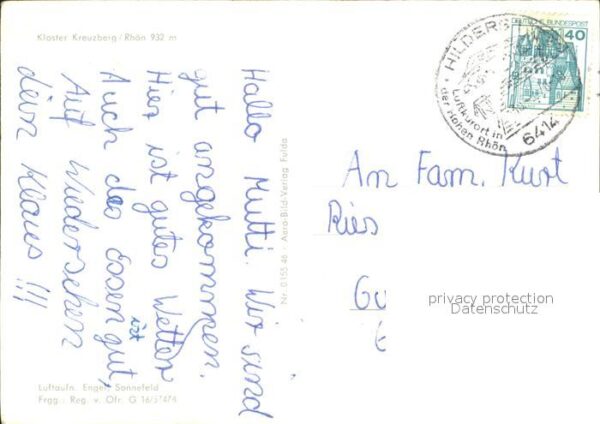 Kloster Kreuzberg / Rhön 932 m
Hallo Mutti. Wir sind
gut angekommen.
Hier ist gutes Wetter
Auch das Essen ist gut,
Auf Wiedersehen
dein Klaus !!!
Luftaufn. Engel, Sonnefeld
Frgg.: Reg. v. Ofr. G 16/5/474
Nr. 0155 46 · Aero-Bild-Verlag Fulda
DEUTSCHE BUNDESPOST
40
HILDERS
Luftkurort in
der Hohen Rhön
6414
An Fam. Kurt
Ries
privacy protection
Datenschutz